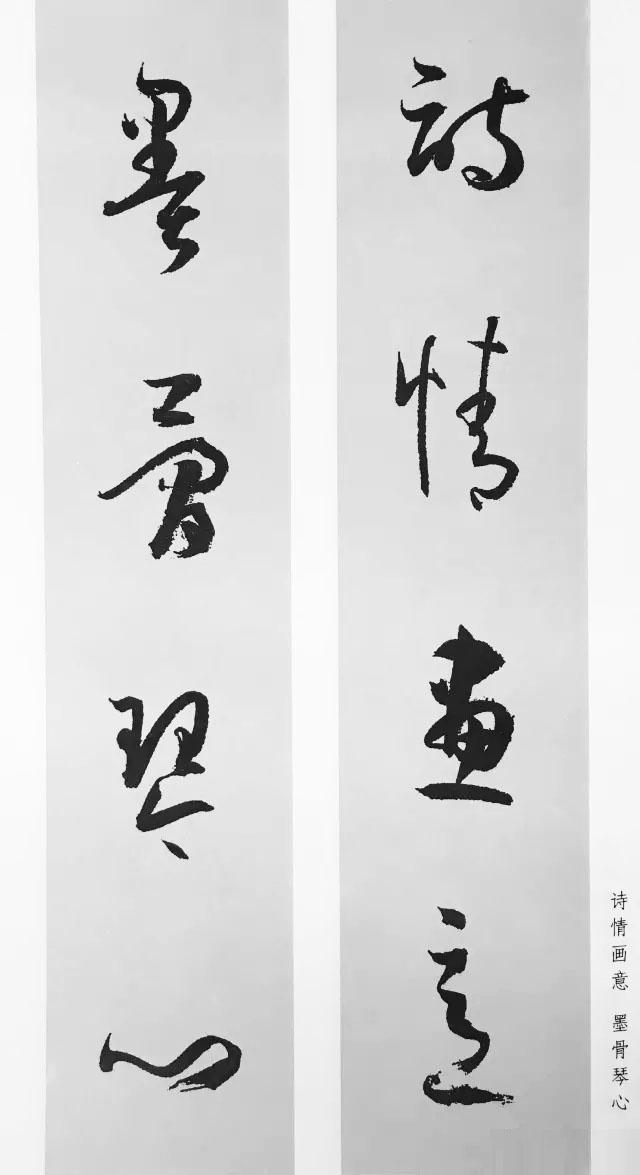 詩情畫意
墨骨琴心
诗情画意 墨骨琴心